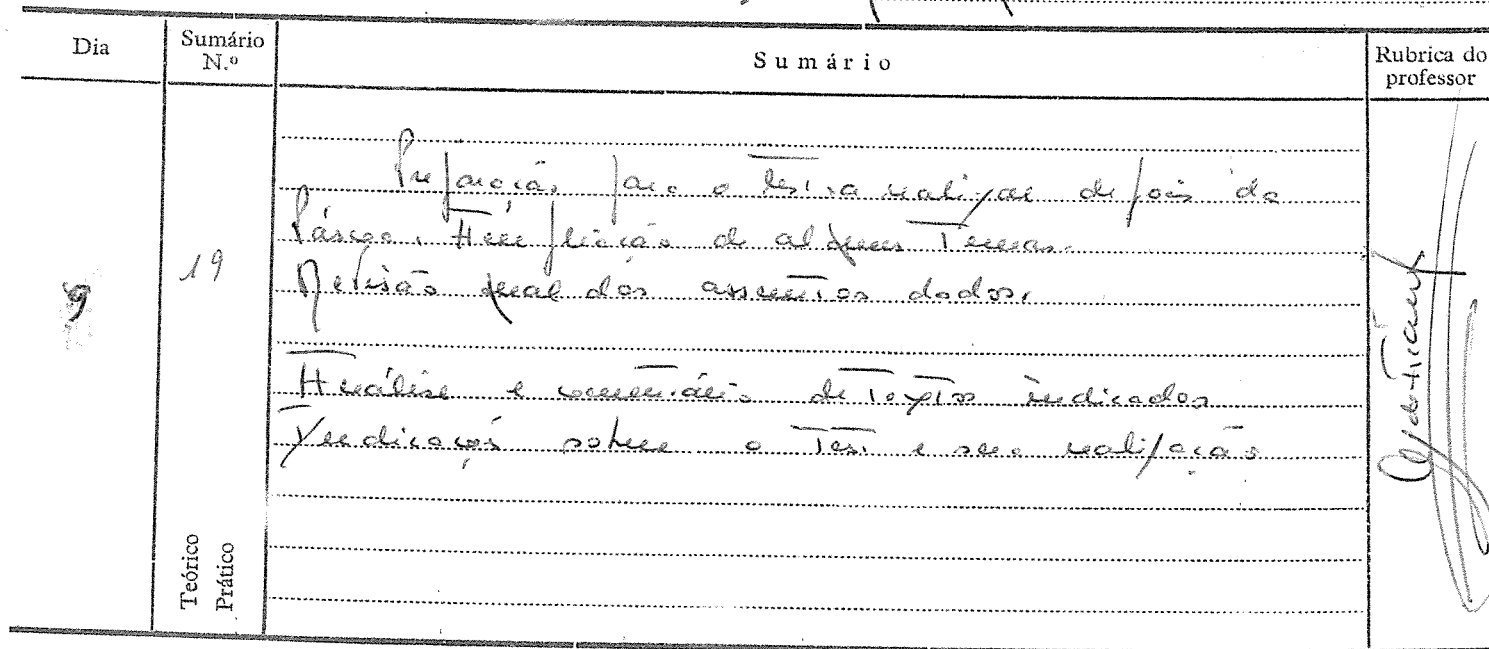 Dia
Sumário N.º
Sumário
Rubrica do professor
9
19
Preparação para o teste a realizar depois da
Páscoa. Amplificação de alguns Temas.
Revisão geral dos assuntos dados.
Análise e comentário de Textos indicados
Indicações sobre o Teste e sua realização
Teórico
Prático